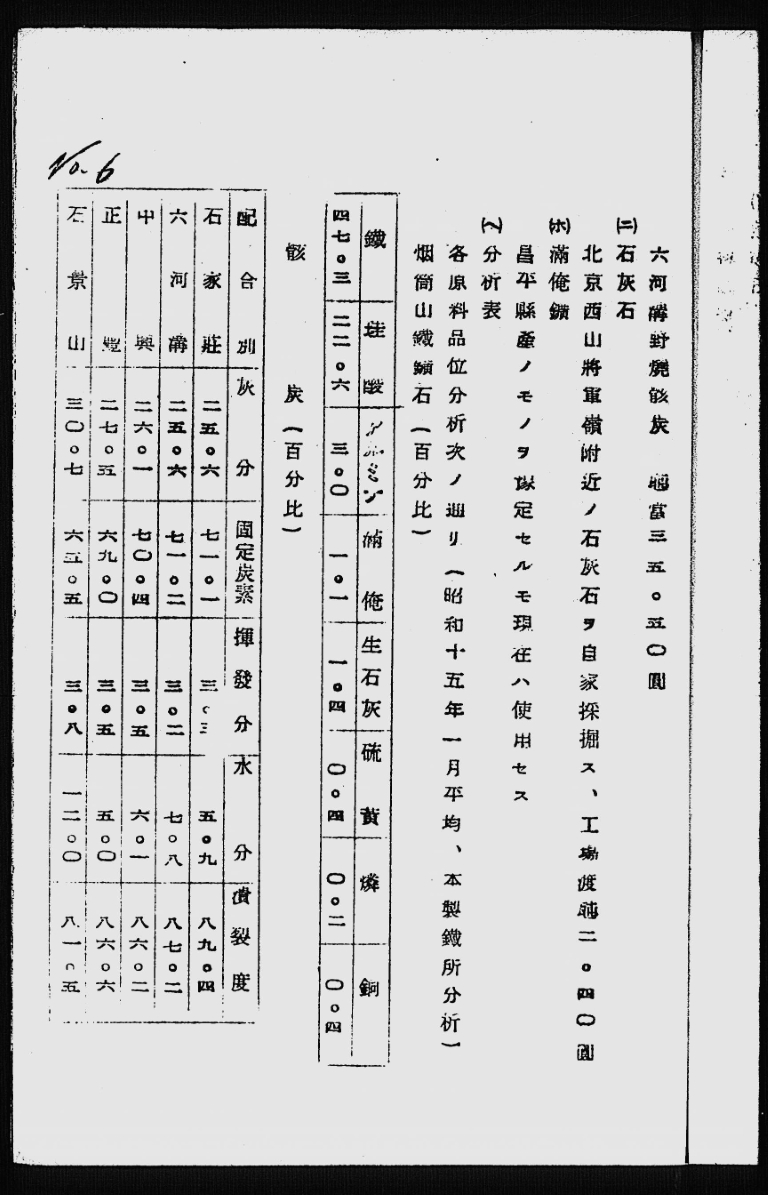 六河溝野燒骸炭 噸當三五。五〇圓
㈡石灰石
北京西山將軍嶺附近ノ石灰石ヲ自家採掘ス、工場渡噸二。四〇圓
㈭滿俺鑛
昌平縣產ノモノヲ豫定セルモ現在ハ使用セス
㈬分析表
各原料品位分析次ノ通リ(昭和十五年一月平均、本製鐵所分析)
烟筒山鐵鑛石(百分比)
鐵 珪酸 アルミナ 滿俺 生石灰 硫黃 燐 銅
四七。三 二二。六 三。〇 一。一 一。四 〇。四 〇。二 〇。四
骸炭(百分比)
配合別 灰分 固定炭素 揮發分 水分 潰裂度
石家莊 二五。六 七一。一 三。三 五。九 八九。四
六河溝 二五。六 七一。二 三。二 七。八 八七。二
中興 二六。一 七〇。四 三。五 六。一 八六。二
正豐 二七。五 六九。〇 三。五 五。〇 八六。六
石景山 三〇。七 六五。五 三。八 一二。〇 八一。五
No. 6